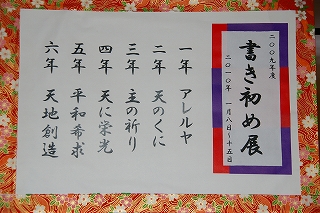 二〇〇九年度
書き初め展
二〇一〇年 一月八日~十五日
一年 アレルヤ
二年 天のくに
三年 主の祈り
四年 天に栄光
五年 平和希求
六年 天地創造